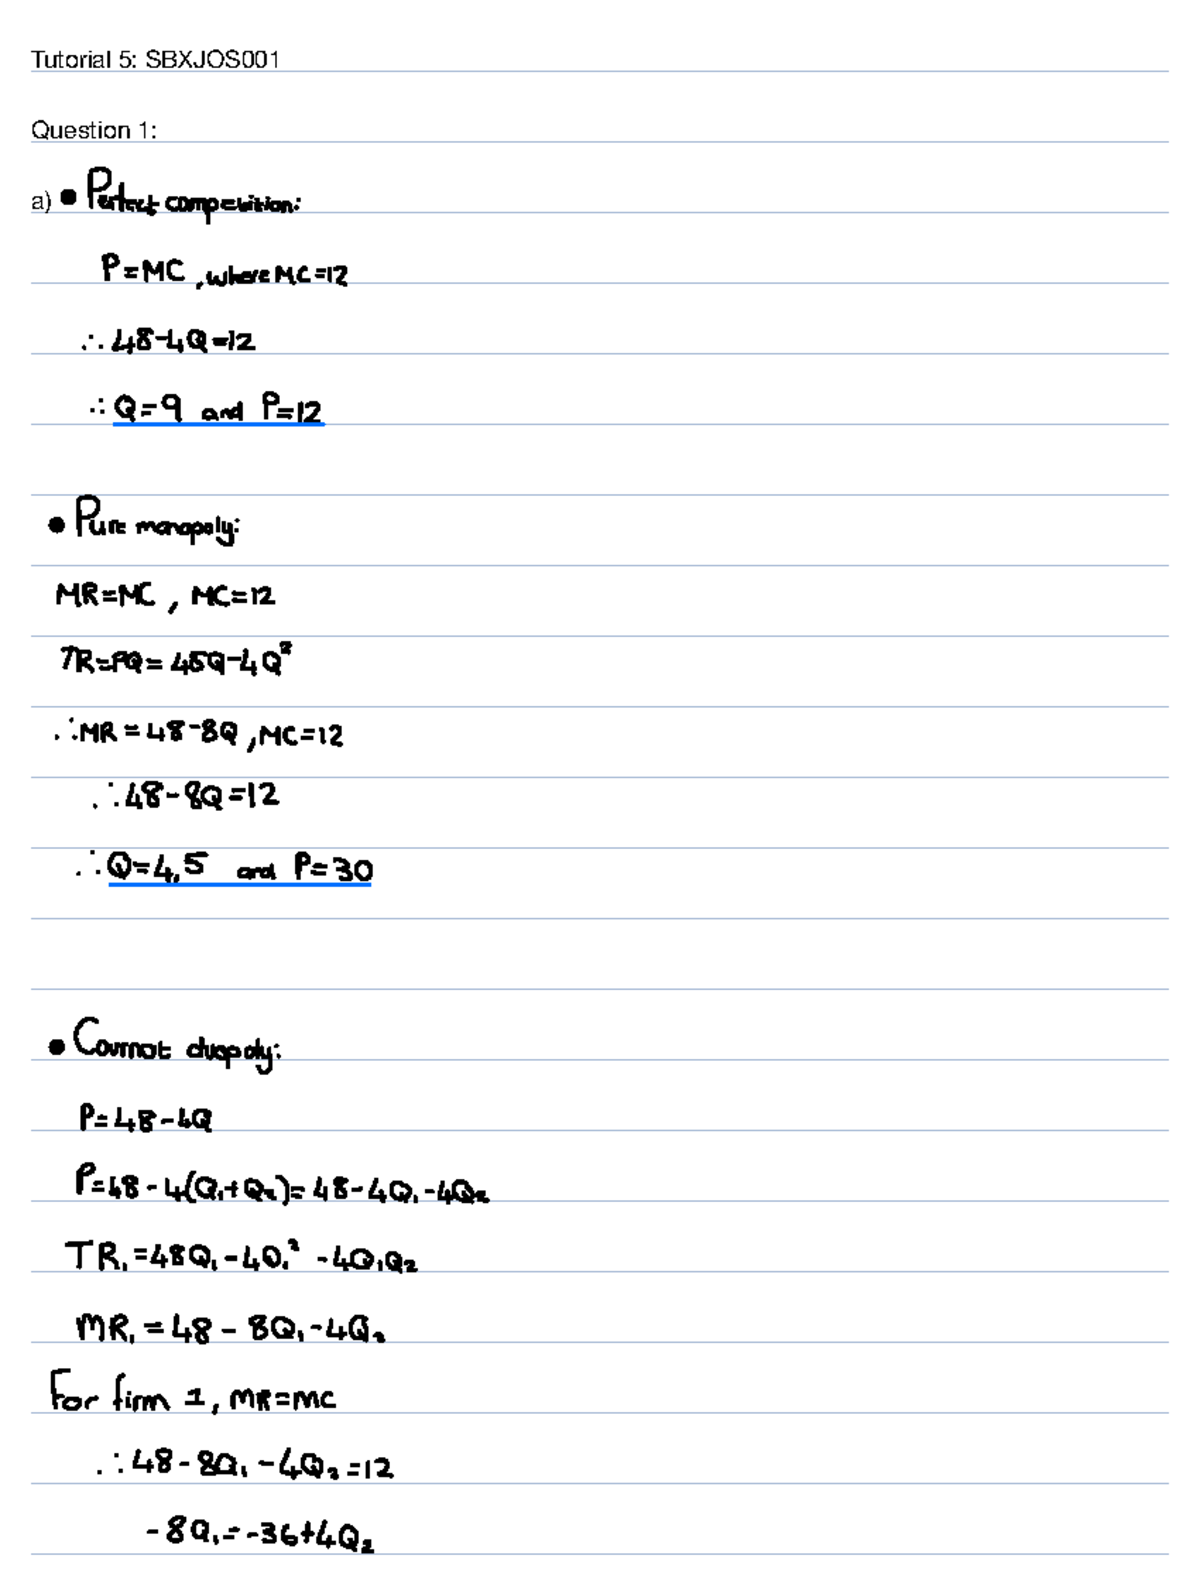 Tutorial 5: SBXJOS001
Question 1:
a) • Perfect competition:
P=MC, where MC=12
∴ 48-4Q=12
∴ Q=9 and P=12
• Pure monopoly:
MR=MC, MC=12
TR=PQ=48Q-4Q²
∴ MR=48-8Q, MC=12
∴ 48-8Q=12
∴ Q=4,5 and P=30
• Cournot duopoly:
P=48-4Q
P=48-4(Q₁+Q₂)=48-4Q₁-4Q₂
TR₁=48Q₁-4Q₁²-4Q₁Q₂
MR₁=48-8Q₁-4Q₂
For firm 1, MR=MC
∴ 48-8Q₁-4Q₂=12
-8Q₁=-36+4Q₂